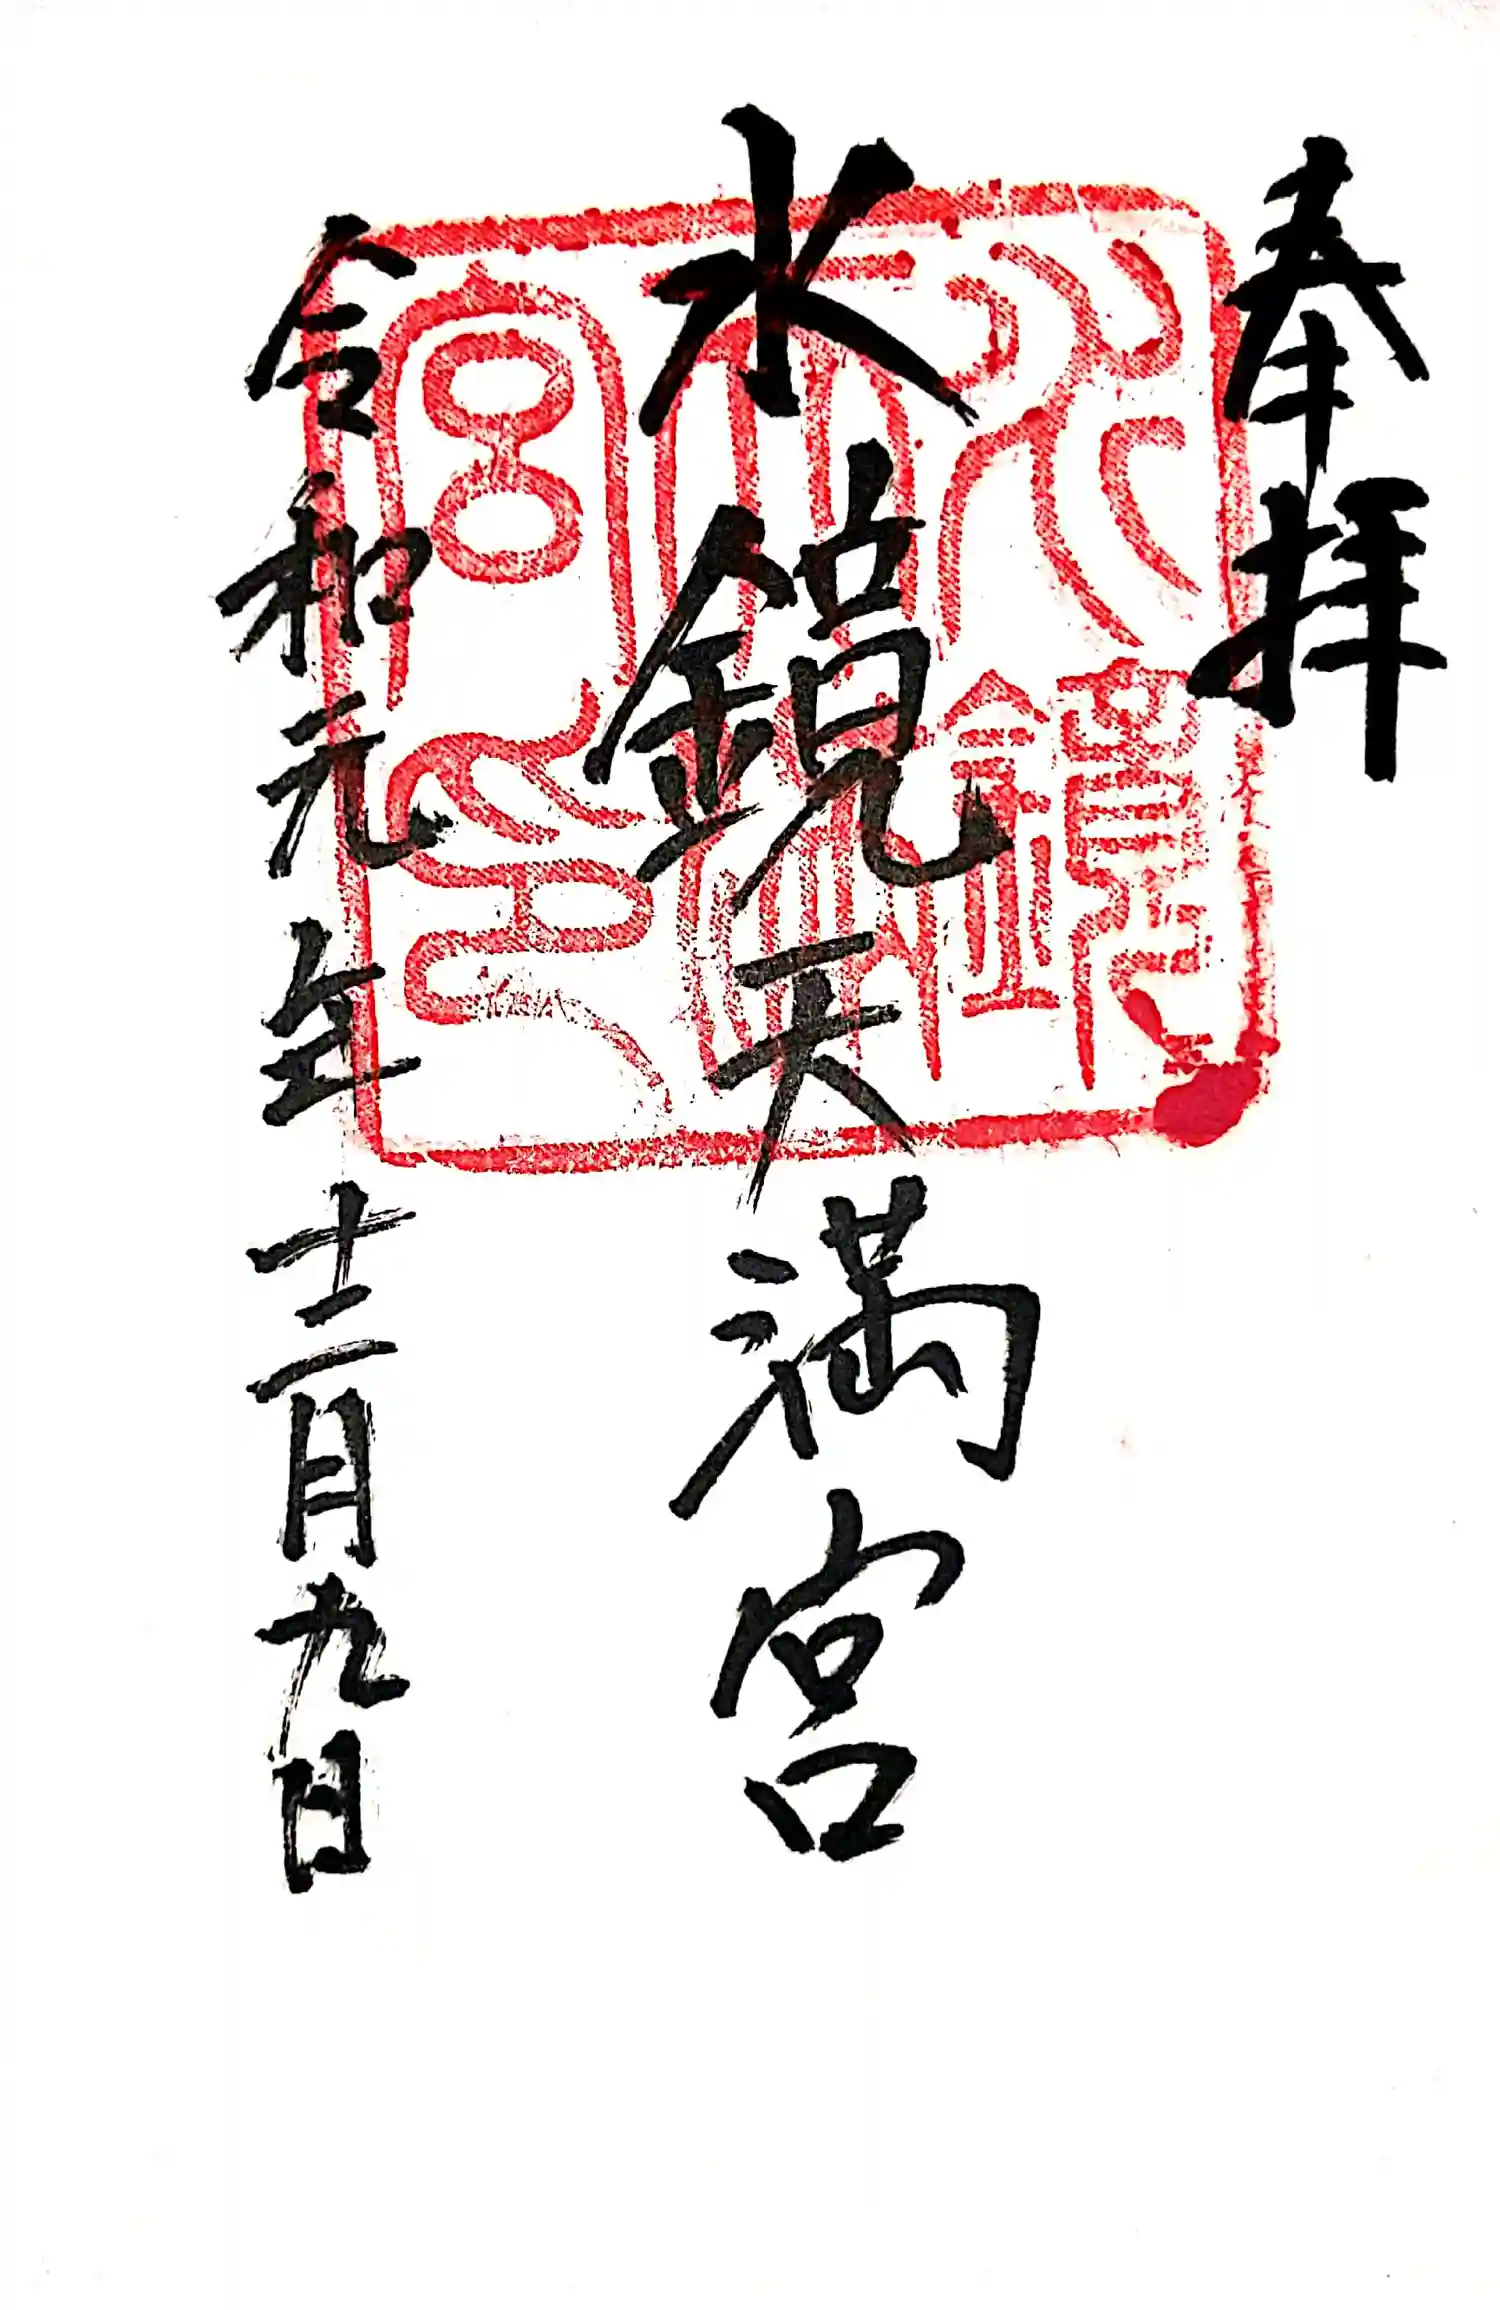 奉拝
水鏡天満宮
令和元年十二月九日
水鏡天満宮印